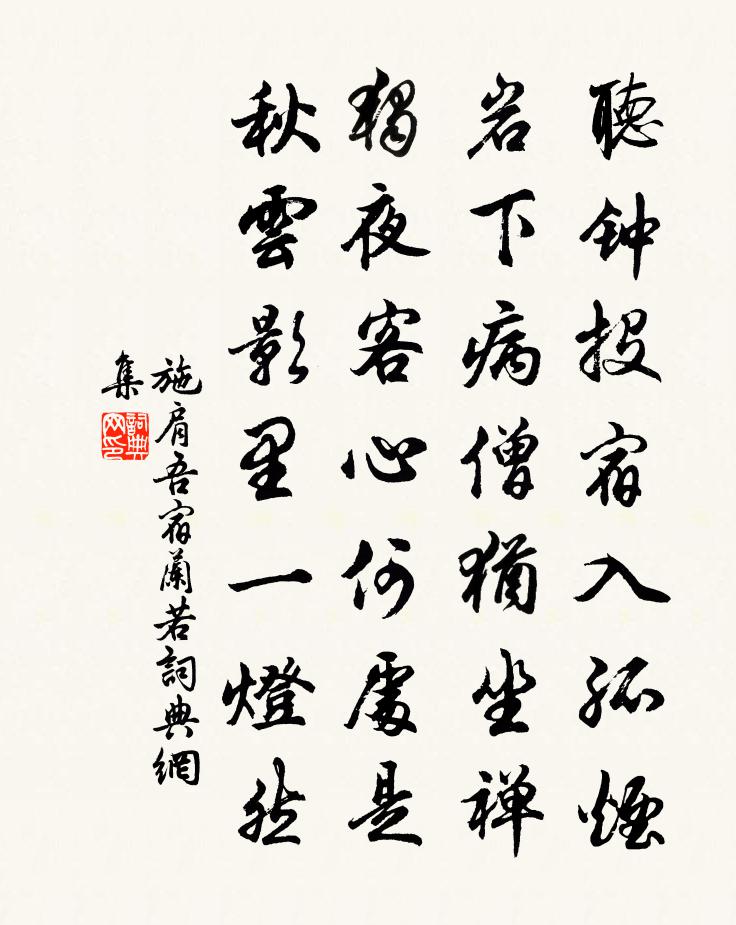 聽钟投宿入孤煙
岩下病僧猶坐禅
獨夜客心何處是
秋雲影里一燈然
施肩吾宿蘭若詞典網
集
詞典
网印